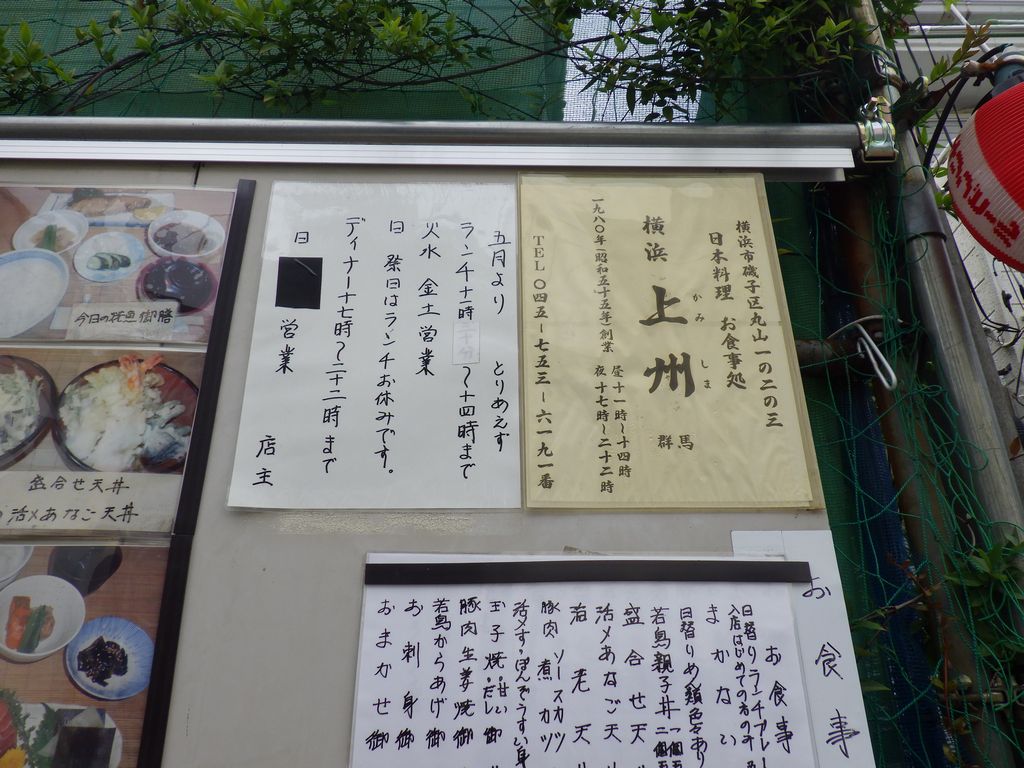 横浜市磯子区丸山一の二の三
日本料理 お食事処
横浜 上州
かみ しま
群馬
昼十一時~十四時
夜十七時~二十二時
一九八〇年(昭和五十五年)創業
TEL〇四五-七五三-六一九一番
五月より とりあえず
ランチ十一時三十分~十四時まで
火水 金土営業
日 祭日はランチお休みです。
ディナー十七時~二十二時まで
日 営業
店主
今日の焼魚御膳
盛合せ天丼
活〆あなご天丼
お食事
お食事
日替りランチプレー
入店はじめての方のみ
まかない
日替りめ
若鳥親子丼
盛合せ天
活〆あなご天
海老天
豚肉 ソースカツ
煮カツ
玉子焼
豚肉生姜焼御
若鳥からあげ御
お刺身御
おまかせ御